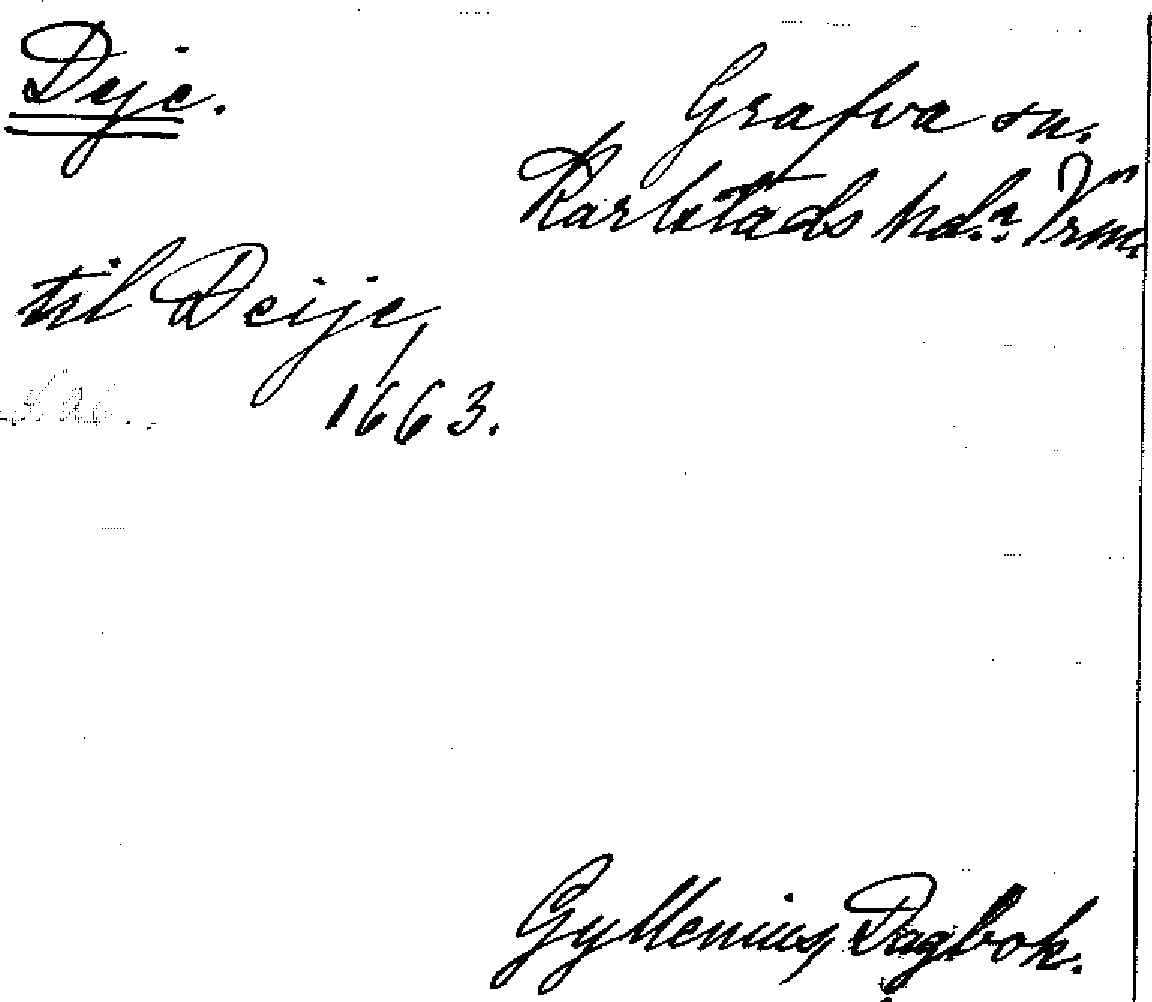 Deje.
Grafva sn.
Karlstads hd. Vrm.
til Deije,
1663.
Gyllenius, Dagbok.